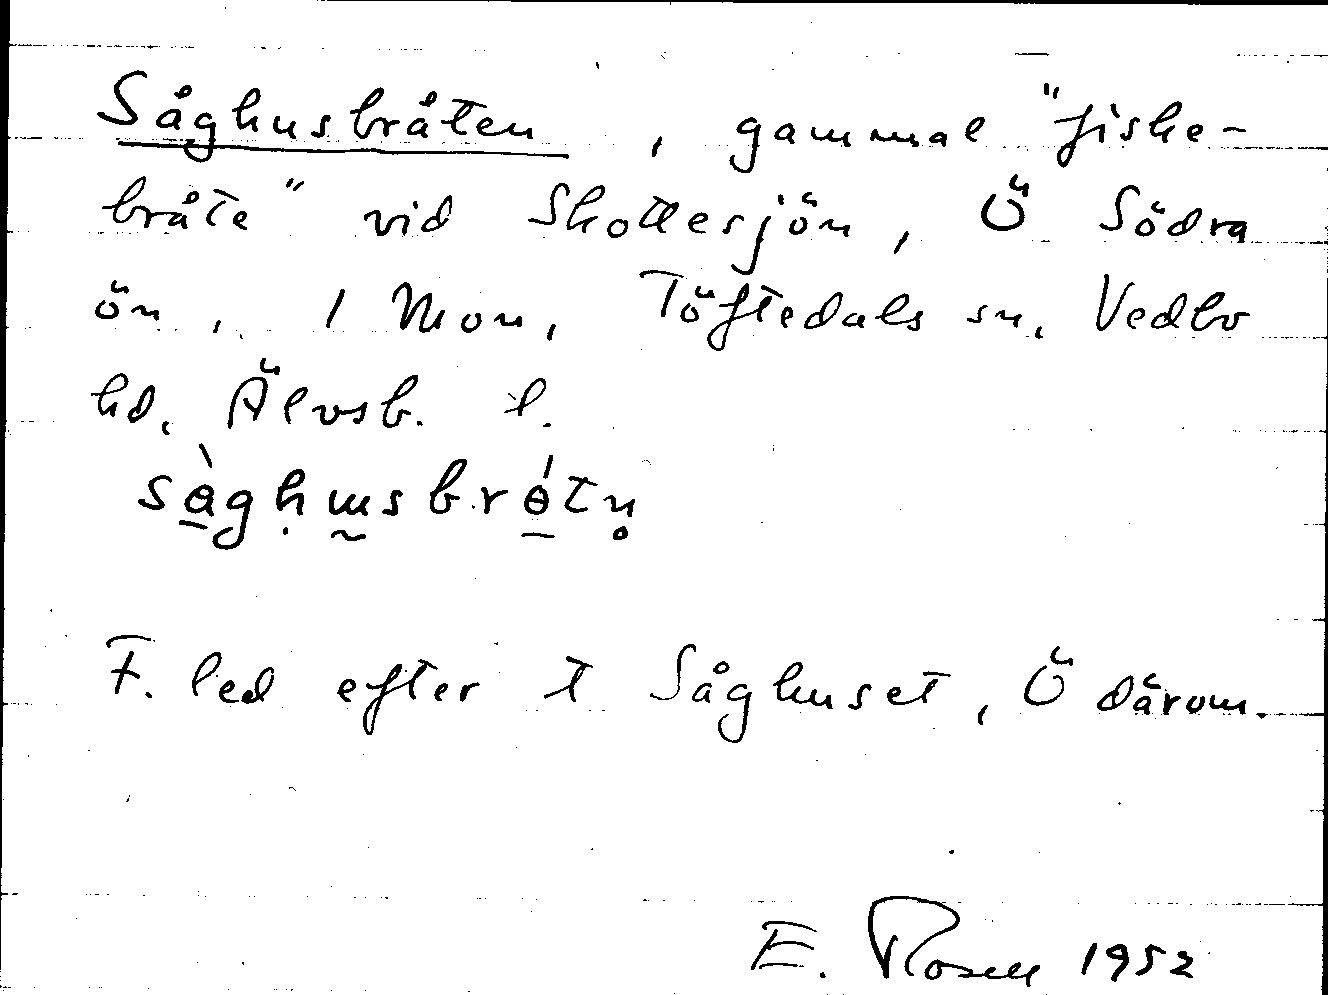 Såghusbråten, gammal "fiske-
bråte" vid Skottesjön, Ö Södra
ön, 1 Mon, Töftedals sn, Vedbo
hd, Älvsb. l.
F. led efter t Såghuset, Ö därom.
E. Rosell 1952